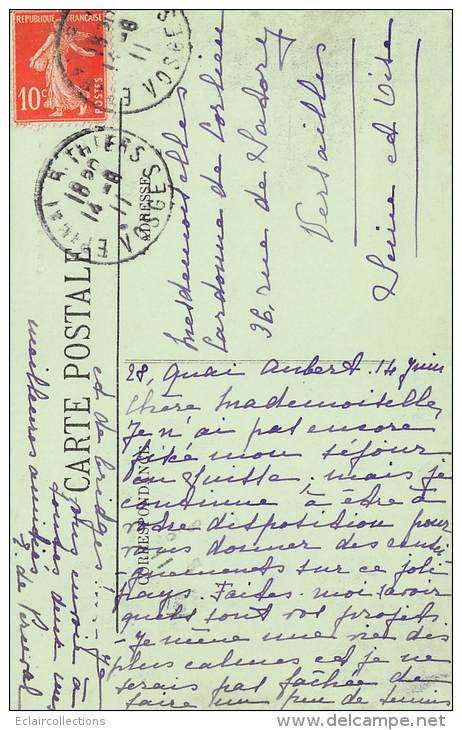 REPUBLIQUE FRANÇAISE
10c POSTES
EPINAL R. THIERS
18 30
14 -6
11
VOSGES
CARTE POSTALE
ADRESSE
CORRESPONDANCE
Mesdemoiselles
Lardenne de
36, rue de
Versailles
Seine et Oise
28, Quai 14 Juin
Chère Mademoiselle,
Je n'ai pas encore
fixé mon séjour
en Suisse, mais je
continue à être à
votre disposition pour
vous donner des rensei
gnements sur ce joli
pays. Faites-moi savoir
quels sont vos projets.
- Je mène une vie des
plus calmes et je ne
serais pas fâchée de
faire un peu de tennis
et de bridge..... Je
vous envoie à
toutes deux mes
meilleures amitiés
de
Eclaircollections